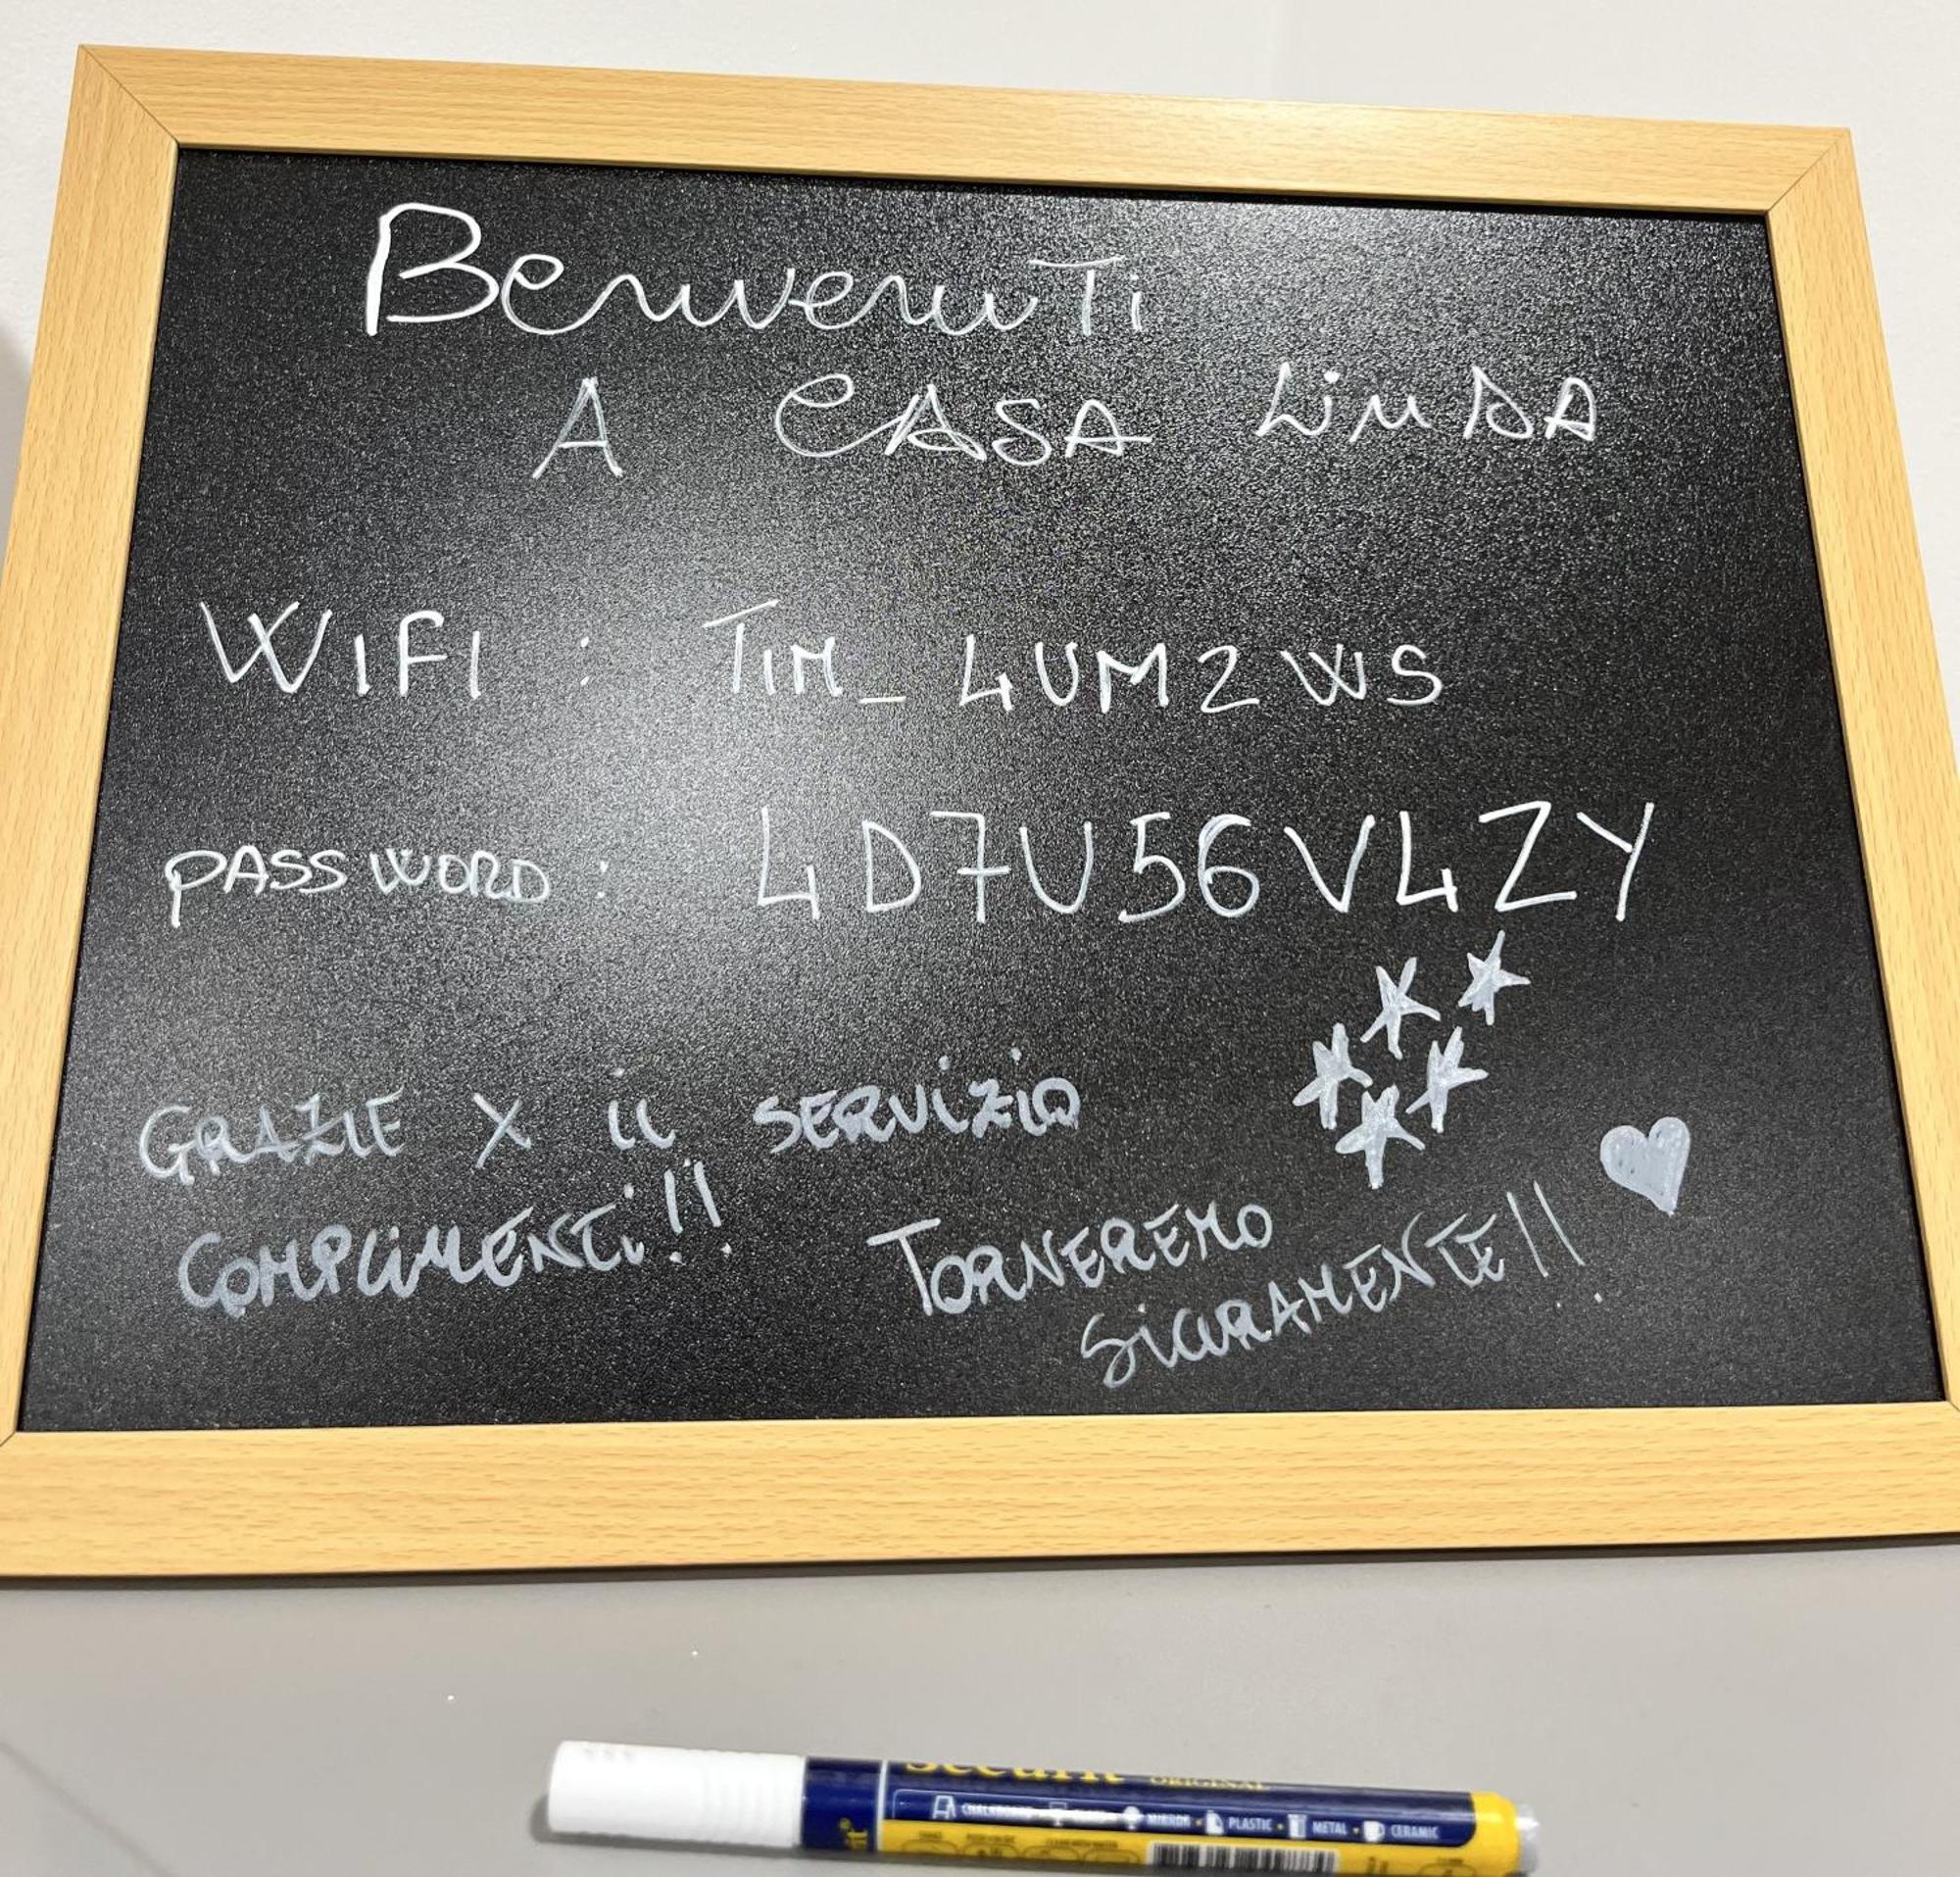 Benvenuti
A CASA LiNDA
WIFI : TIM_4UM2WS
PASSWORD: 4D7U56V4ZY
GRAZIE X iL SERVIZIO
COMPLIMENTi!!
TORNEREMO
SICURAMENTE!!
Securit ORIGINAL
CHALKBOARD • MIRROR • PLASTIC • METAL • CERAMIC